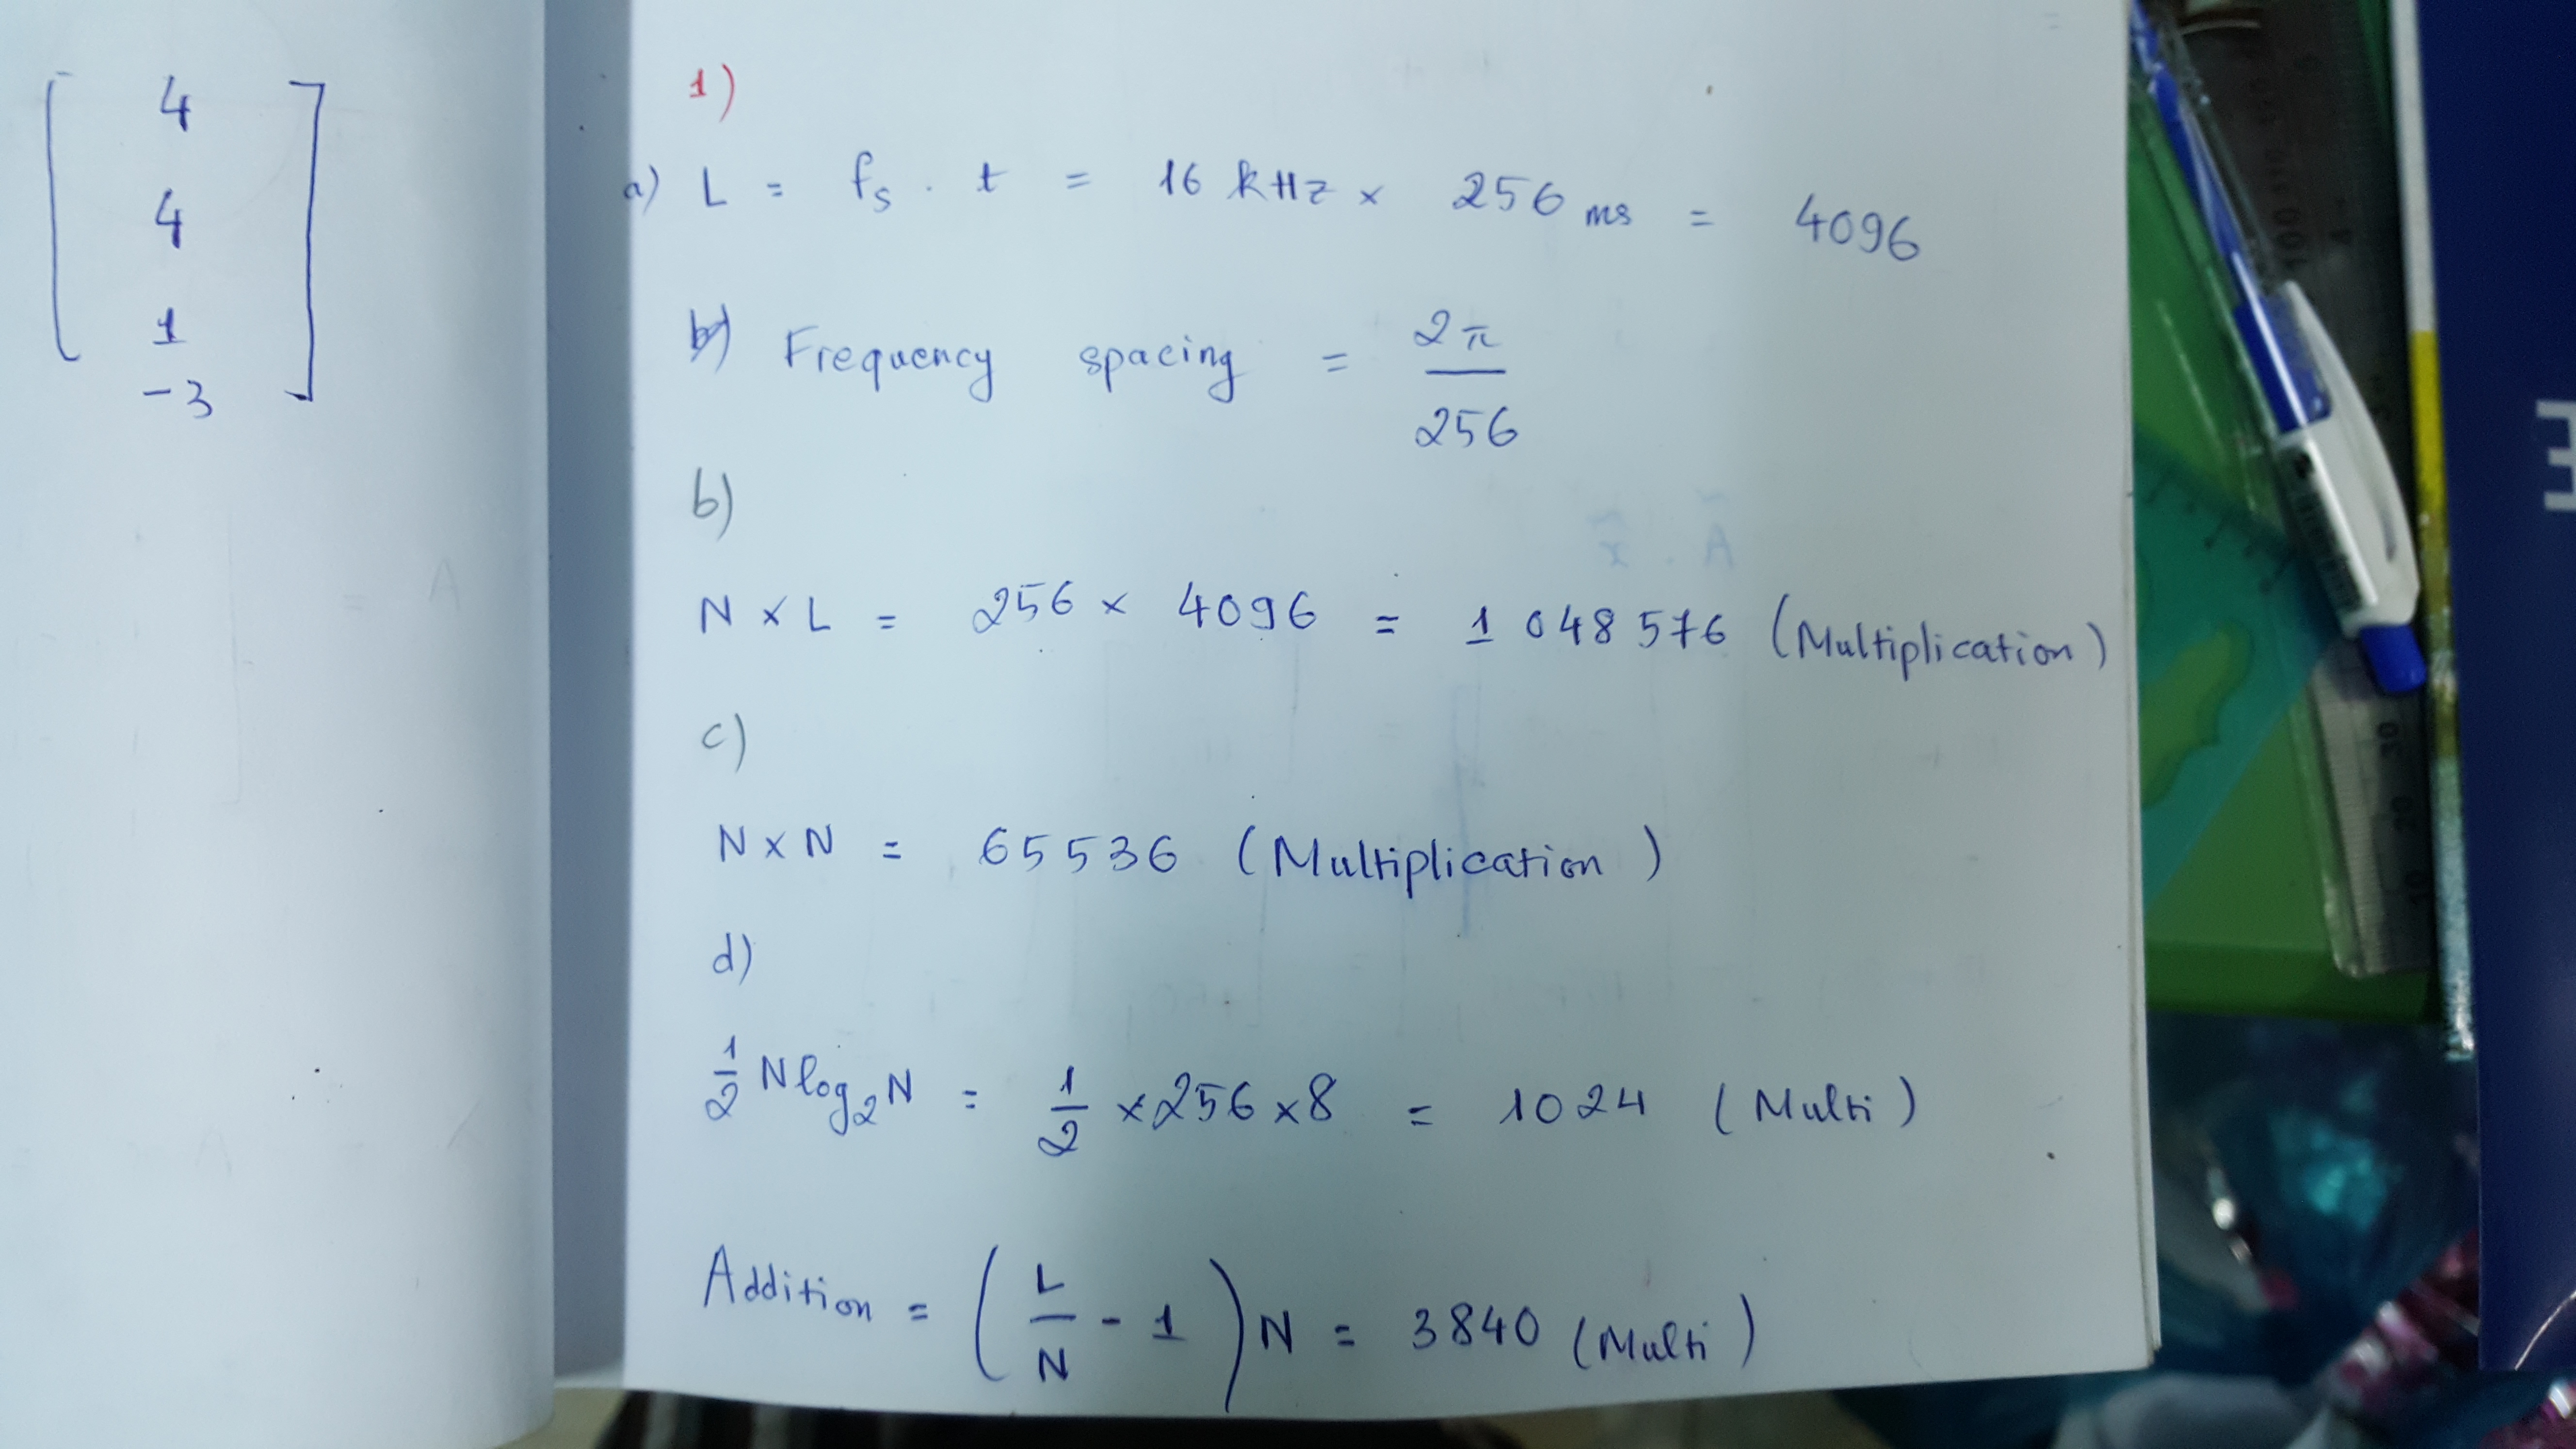 4
4
1
-3
1)
a) L = fs . t = 16 kHz × 256 ms = 4096
b) Frequency spacing = 2π / 256
b)
N × L = 256 × 4096 = 1 048 576 (Multiplication)
c)
N × N = 65536 (Multiplication)
d)
1/2 N log2 N = 1/2 × 256 × 8 = 1024 (Multi)
Addition = (L/N - 1) N = 3840 (Multi)